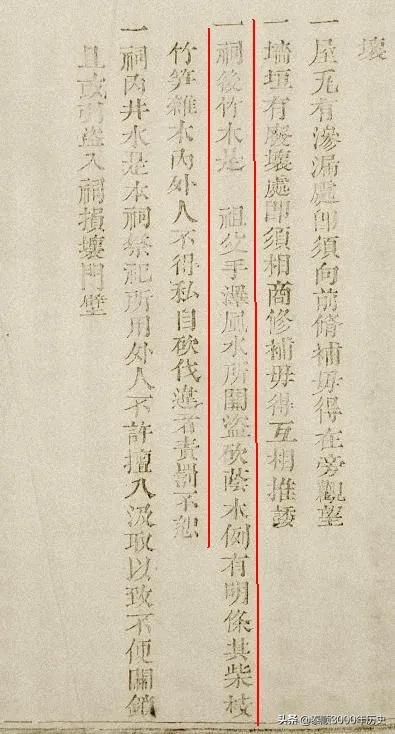 壞
一屋瓦有滲漏處即須向前脩補毋得在旁觀望
一墻垣有廢壞處即須相商修補毋得互相推諉
一祠後竹木是 祖父手澤風水所關盜砍蔭木例有明條其柴枝
竹笋雜木內外人不得私自砍伐違者責罰不恕
一祠內井水是本祠祭祀所用外人不許擅入汲取以致不便關鎖
且或引盜入祠損壞門壁
头条 @泰顺3000年历史